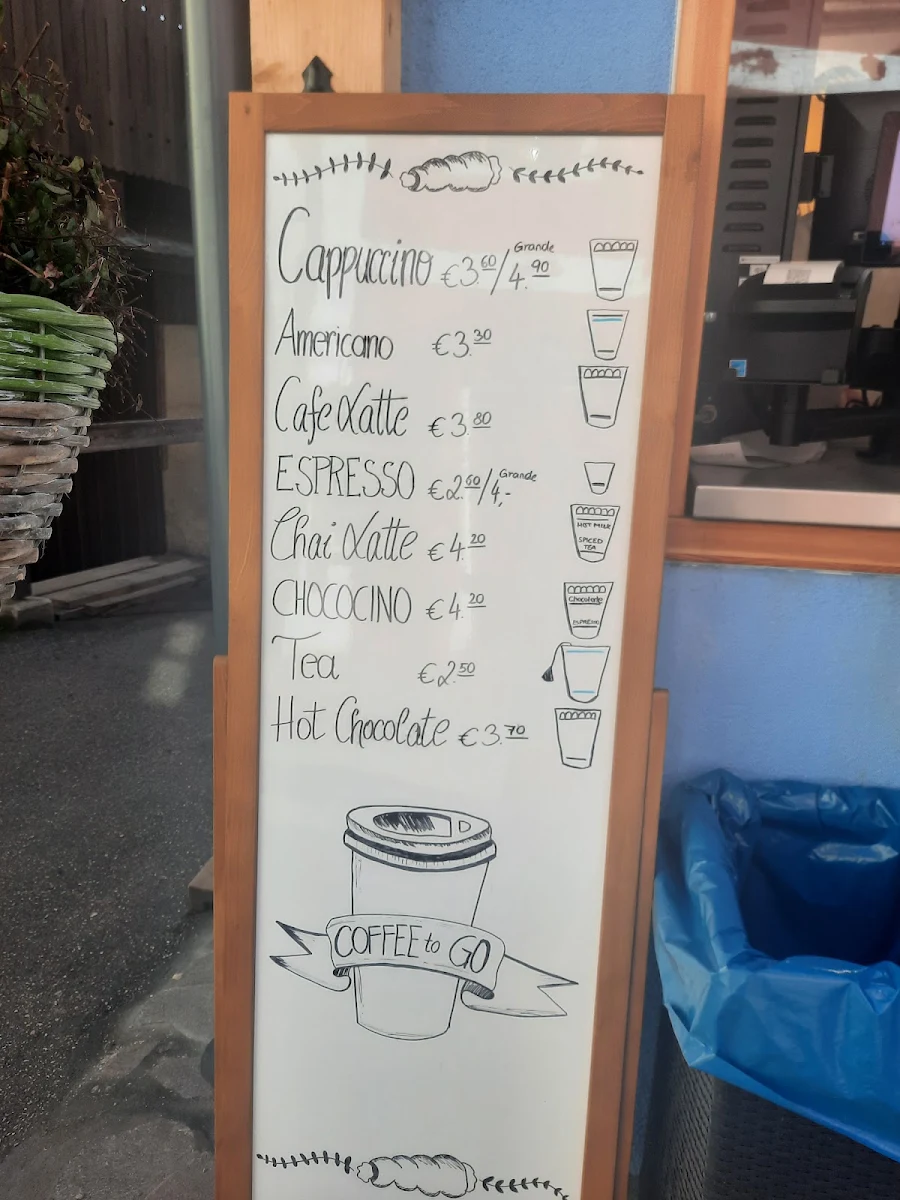 Cappuccino €3.60/4.90 Grande
Americano €3.30
Cafe Latte €3.80
ESPRESSO €2.60/4,- Grande
Chai Latte €4.20
HOT MILK
SPICED
TEA
CHOCOCINO €4.20
Chocolate
ESPRESSO
Tea €2.50
Hot Chocolate €3.70
COFFEE to GO